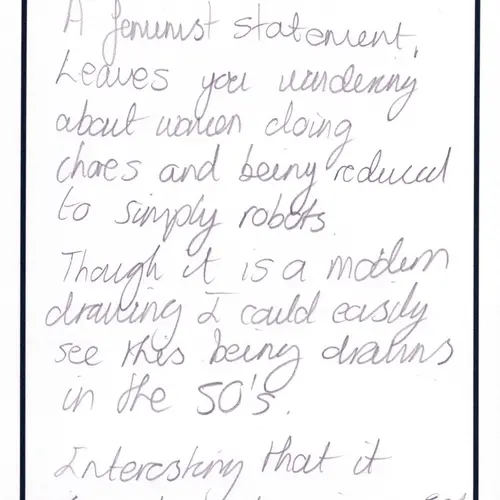 A feminist statement.
Leaves you wondering
about women doing
chores and being reduced
to simply robots.
Though it is a modern
drawing I could easily
see this being drawn
in the 50's.
Interesting that it